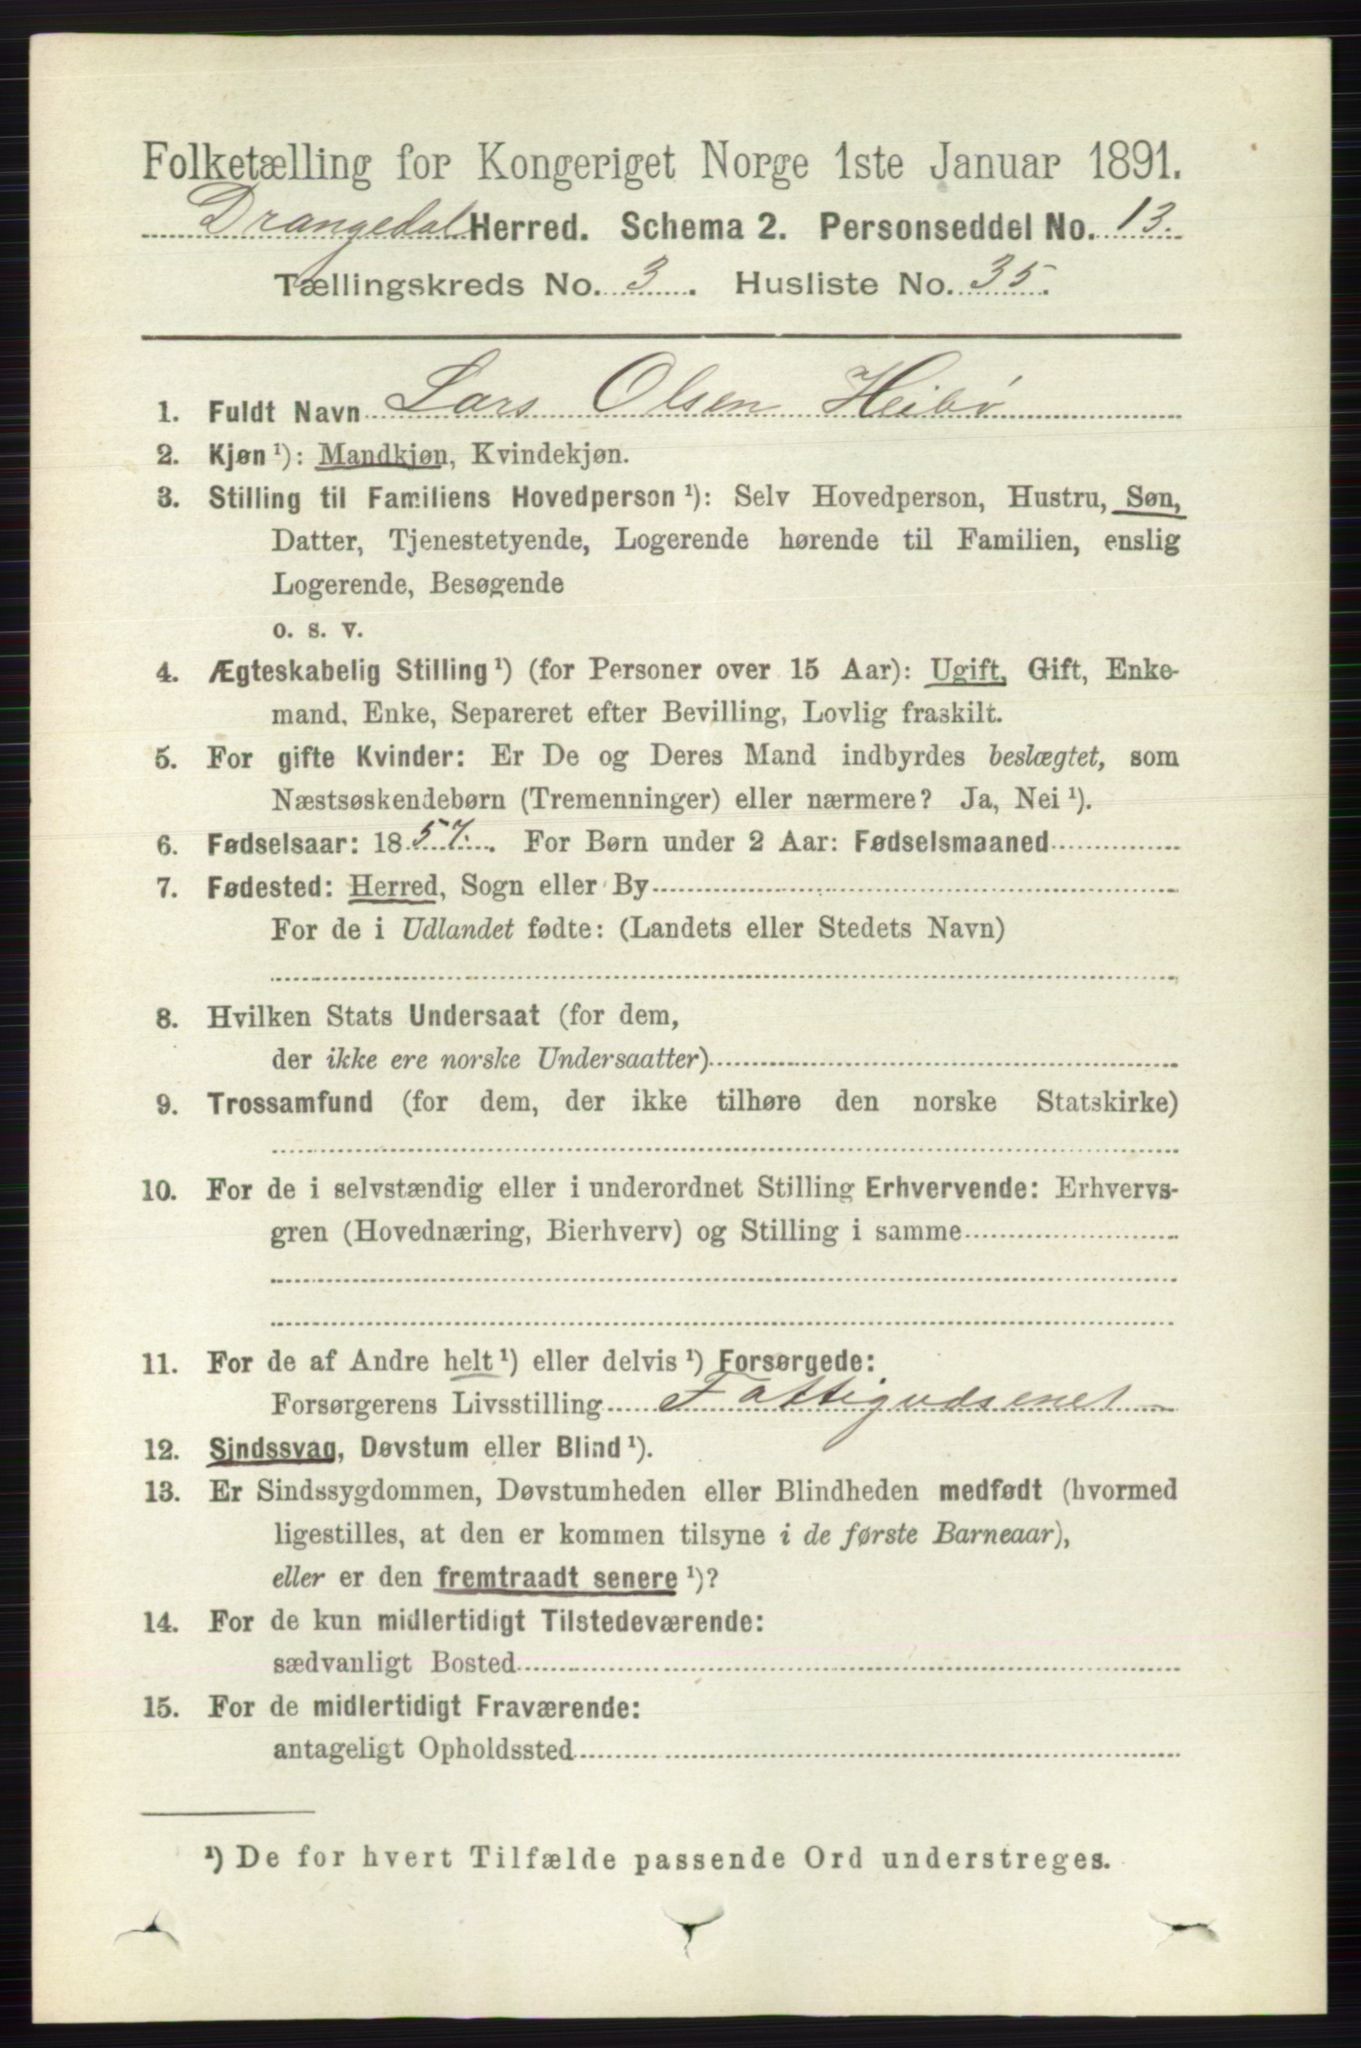 Folketælling for Kongeriget Norge 1ste Januar 1891.
Drangedal Herred. Schema 2. Personseddel No. 13.
Tællingskreds No. 3. Husliste No. 35.
1. Fuldt Navn Lars Olsen Heibø
2. Kjøn ¹): Mandkjøn, Kvindekjøn.
3. Stilling til Familiens Hovedperson ¹): Selv Hovedperson, Hustru, Søn,
Datter, Tjenestetyende, Logerende hørende til Familien, enslig
Logerende, Besøgende
o. s. v.
4. Ægteskabelig Stilling ¹) (for Personer over 15 Aar): Ugift, Gift, Enke-
mand, Enke, Separeret efter Bevilling, Lovlig fraskilt.
5. For gifte Kvinder: Er De og Deres Mand indbyrdes beslægtet, som
Næstsøskendebørn (Tremenninger) eller nærmere? Ja, Nei ¹).
6. Fødselsaar: 1857. For Børn under 2 Aar: Fødselsmaaned
7. Fødested: Herred, Sogn eller By
For de i Udlandet fødte: (Landets eller Stedets Navn)
8. Hvilken Stats Undersaat (for dem,
der ikke ere norske Undersaatter)
9. Trossamfund (for dem, der ikke tilhøre den norske Statskirke)
10. For de i selvstændig eller i underordnet Stilling Erhvervende: Erhvervs-
gren (Hovednæring, Bierhverv) og Stilling i samme
11. For de af Andre helt ¹) eller delvis ¹) Forsørgede:
Forsørgerens Livsstilling Fattigvæsenet
12. Sindssvag, Døvstum eller Blind ¹).
13. Er Sindssygdommen, Døvstumheden eller Blindheden medfødt (hvormed
ligestilles, at den er kommen tilsyne i de første Barneaar),
eller er den fremtraadt senere ¹)?
14. For de kun midlertidigt Tilstedeværende:
sædvanligt Bosted
15. For de midlertidigt Fraværende:
antageligt Opholdssted
¹) De for hvert Tilfælde passende Ord understreges.